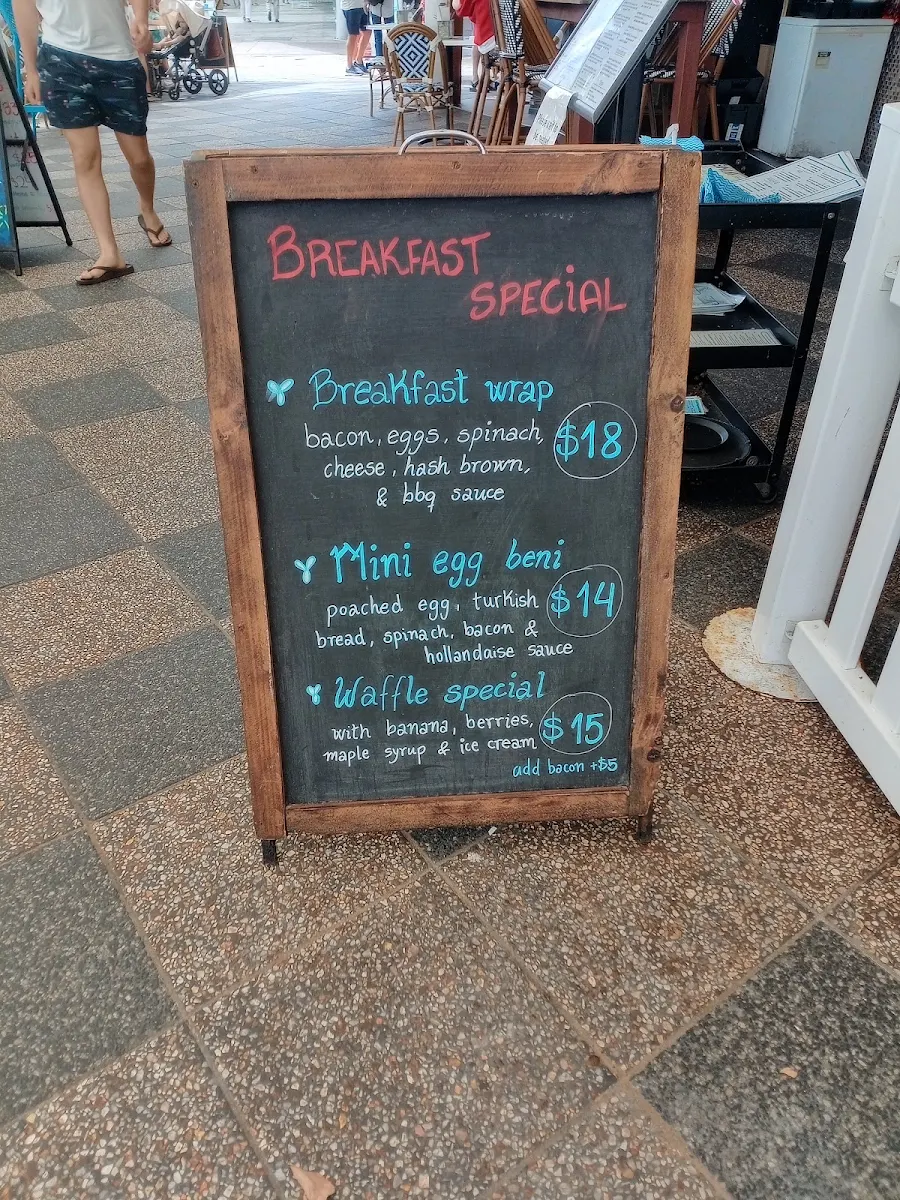 BREAKFAST
SPECIAL
Breakfast wrap
bacon, eggs, spinach,
cheese, hash brown,
& bbq sauce
$18
Mini egg beni
poached egg, turkish
bread, spinach, bacon &
hollandaise sauce
$14
Waffle special
with banana, berries,
maple syrup & ice cream
$15
add bacon +$5